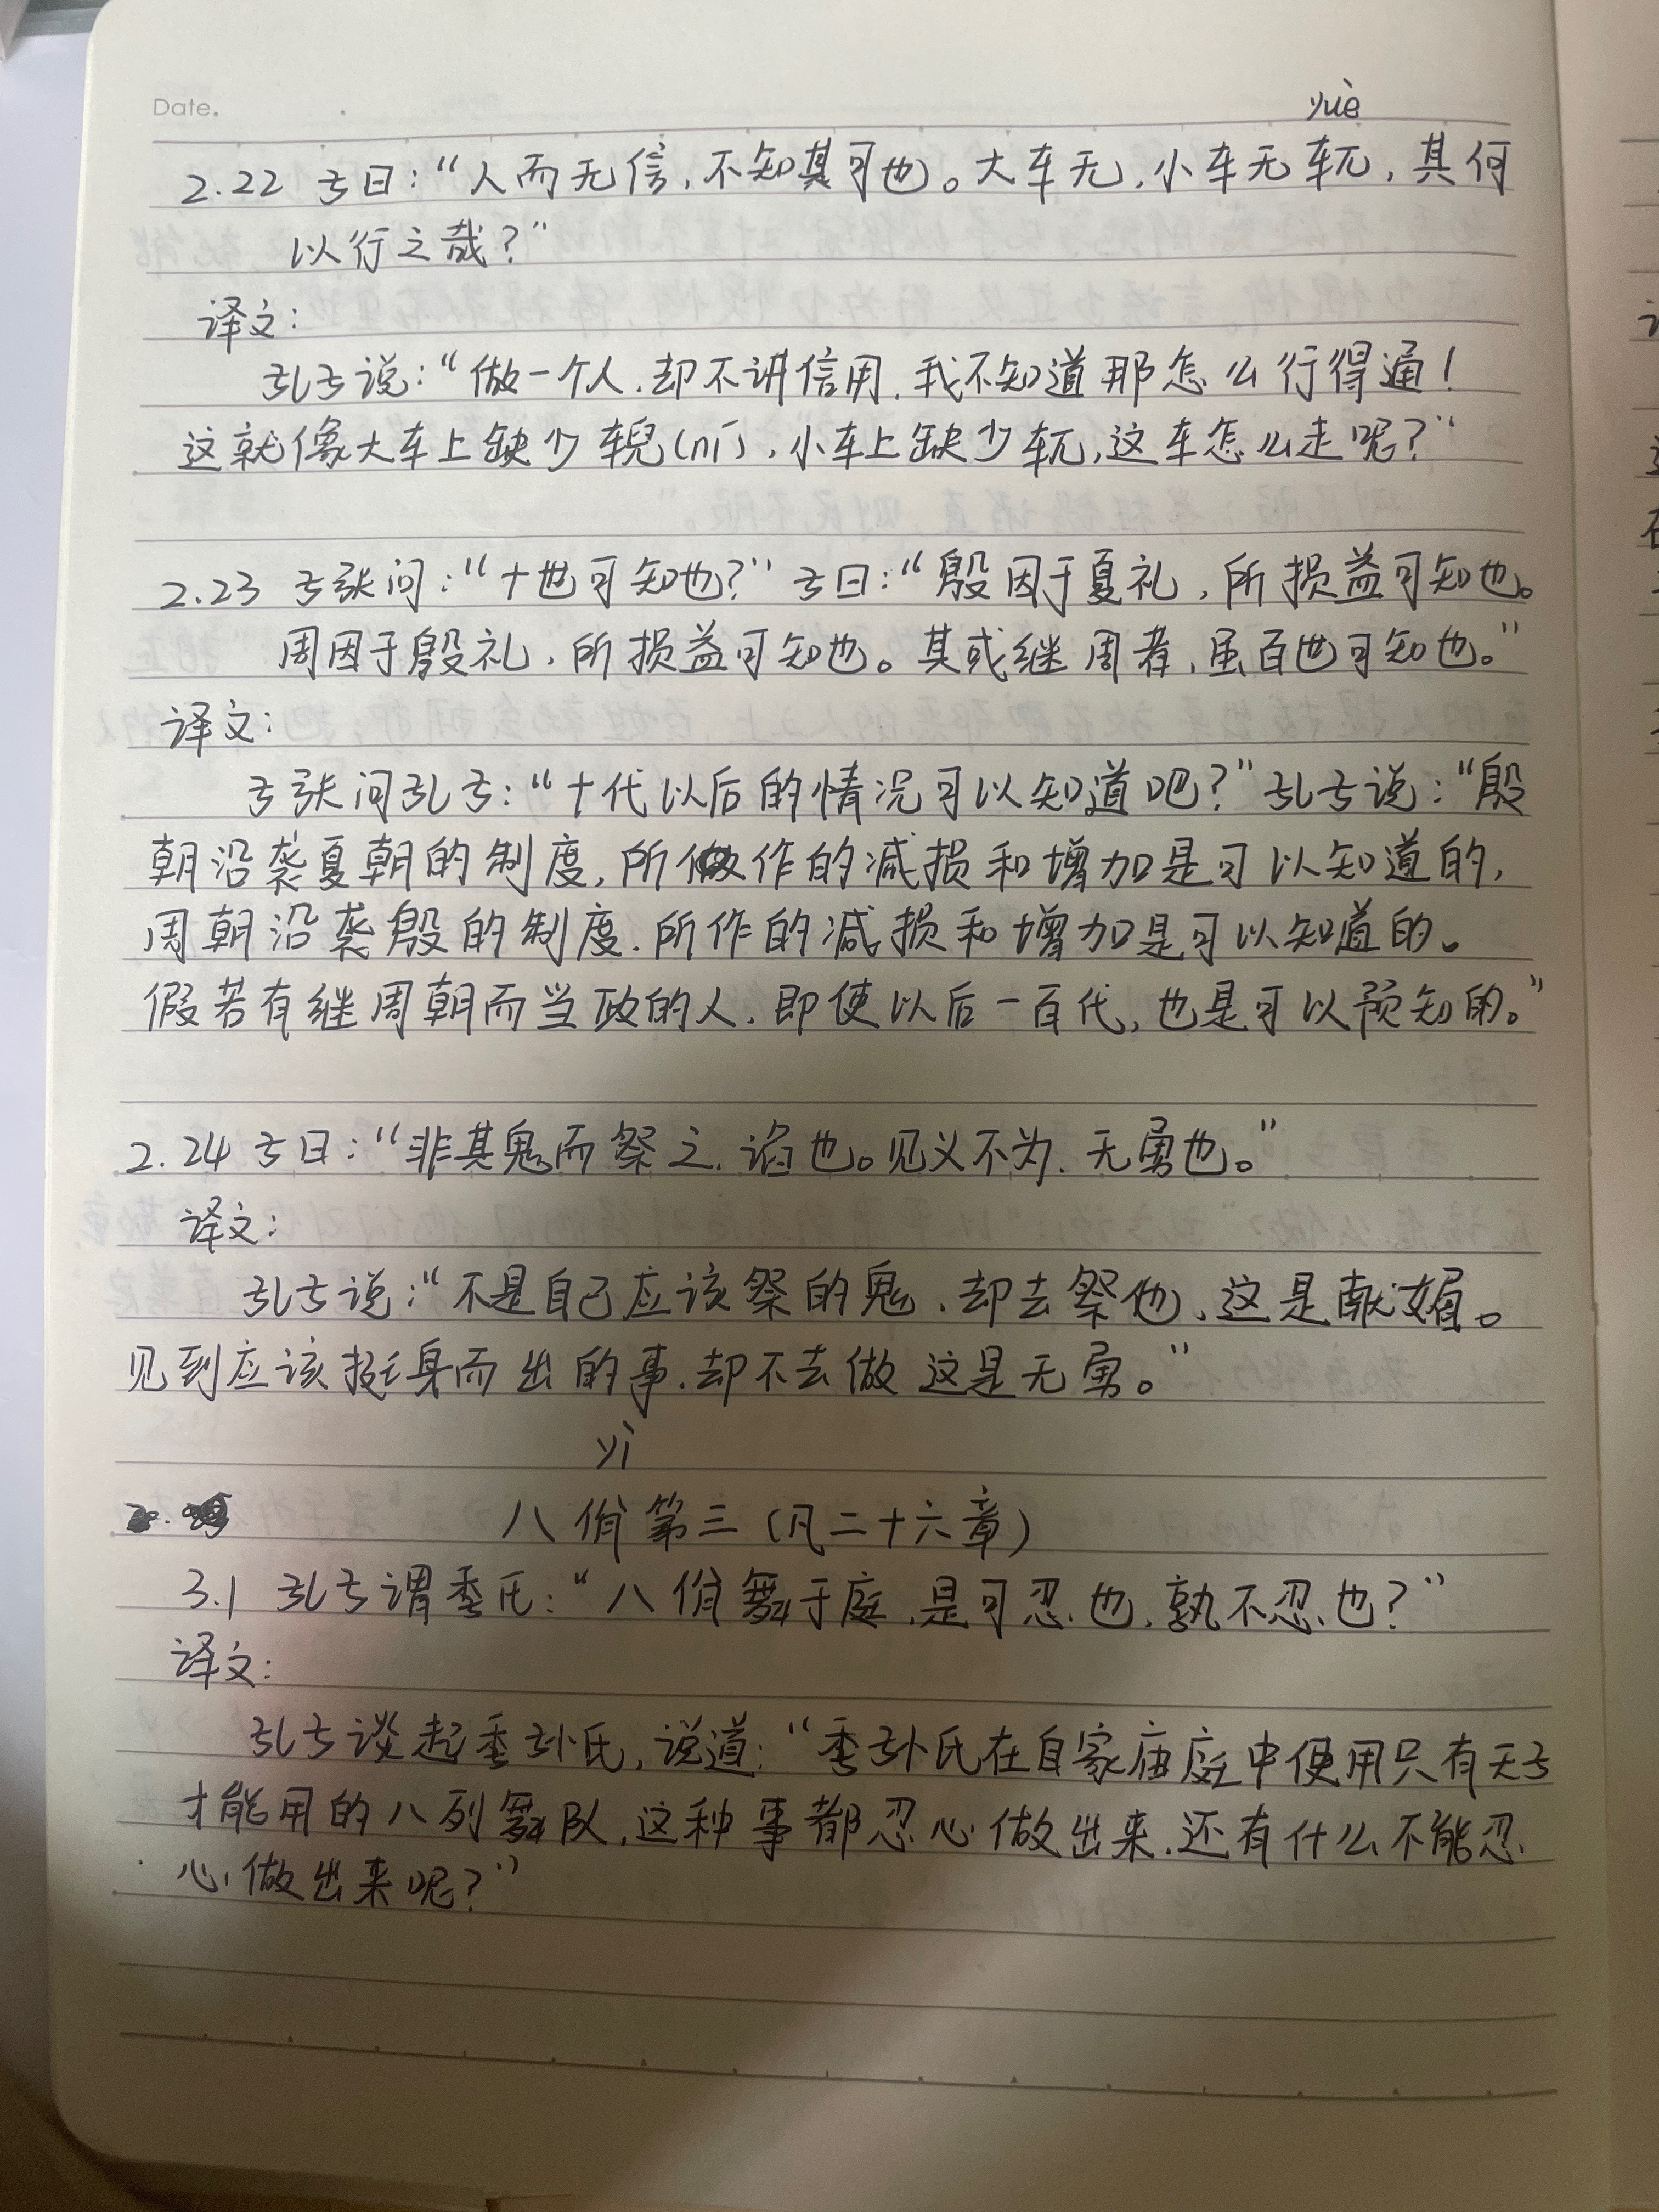 Date.
yuè
2.22 子曰：“人而无信，不知其可也。大车无，小车无軏，其何
以行之哉？”
译文：
孔子说：“做一个人，却不讲信用，我不知道那怎么行得通！
这就像大车上缺少輗(ní)，小车上缺少軏，这车怎么走呢？”
2.23 子张问：“十世可知也？”子曰：“殷因于夏礼，所损益可知也。
周因于殷礼，所损益可知也。其或继周者，虽百世可知也。”
译文：
子张问孔子：“十代以后的情况可以知道吧？”孔子说：“殷
朝沿袭夏朝的制度，所作的减损和增加是可以知道的，
周朝沿袭殷的制度，所作的减损和增加是可以知道的。
假若有继周朝而当政的人，即使以后一百代，也是可以预知的。”
2.24 子曰：“非其鬼而祭之，谄也。见义不为，无勇也。”
译文：
孔子说：“不是自己应该祭的鬼，却去祭他，这是献媚。
见到应该挺身而出的事，却不去做 这是无勇。”
yì
八佾第三（凡二十六章）
3.1 孔子谓季氏：“八佾舞于庭，是可忍也，孰不忍也？”
译文：
孔子谈起季孙氏，说道：“季孙氏在自家庙庭中使用只有天子
才能用的八列舞队，这种事都忍心做出来，还有什么不能忍
心做出来呢？”